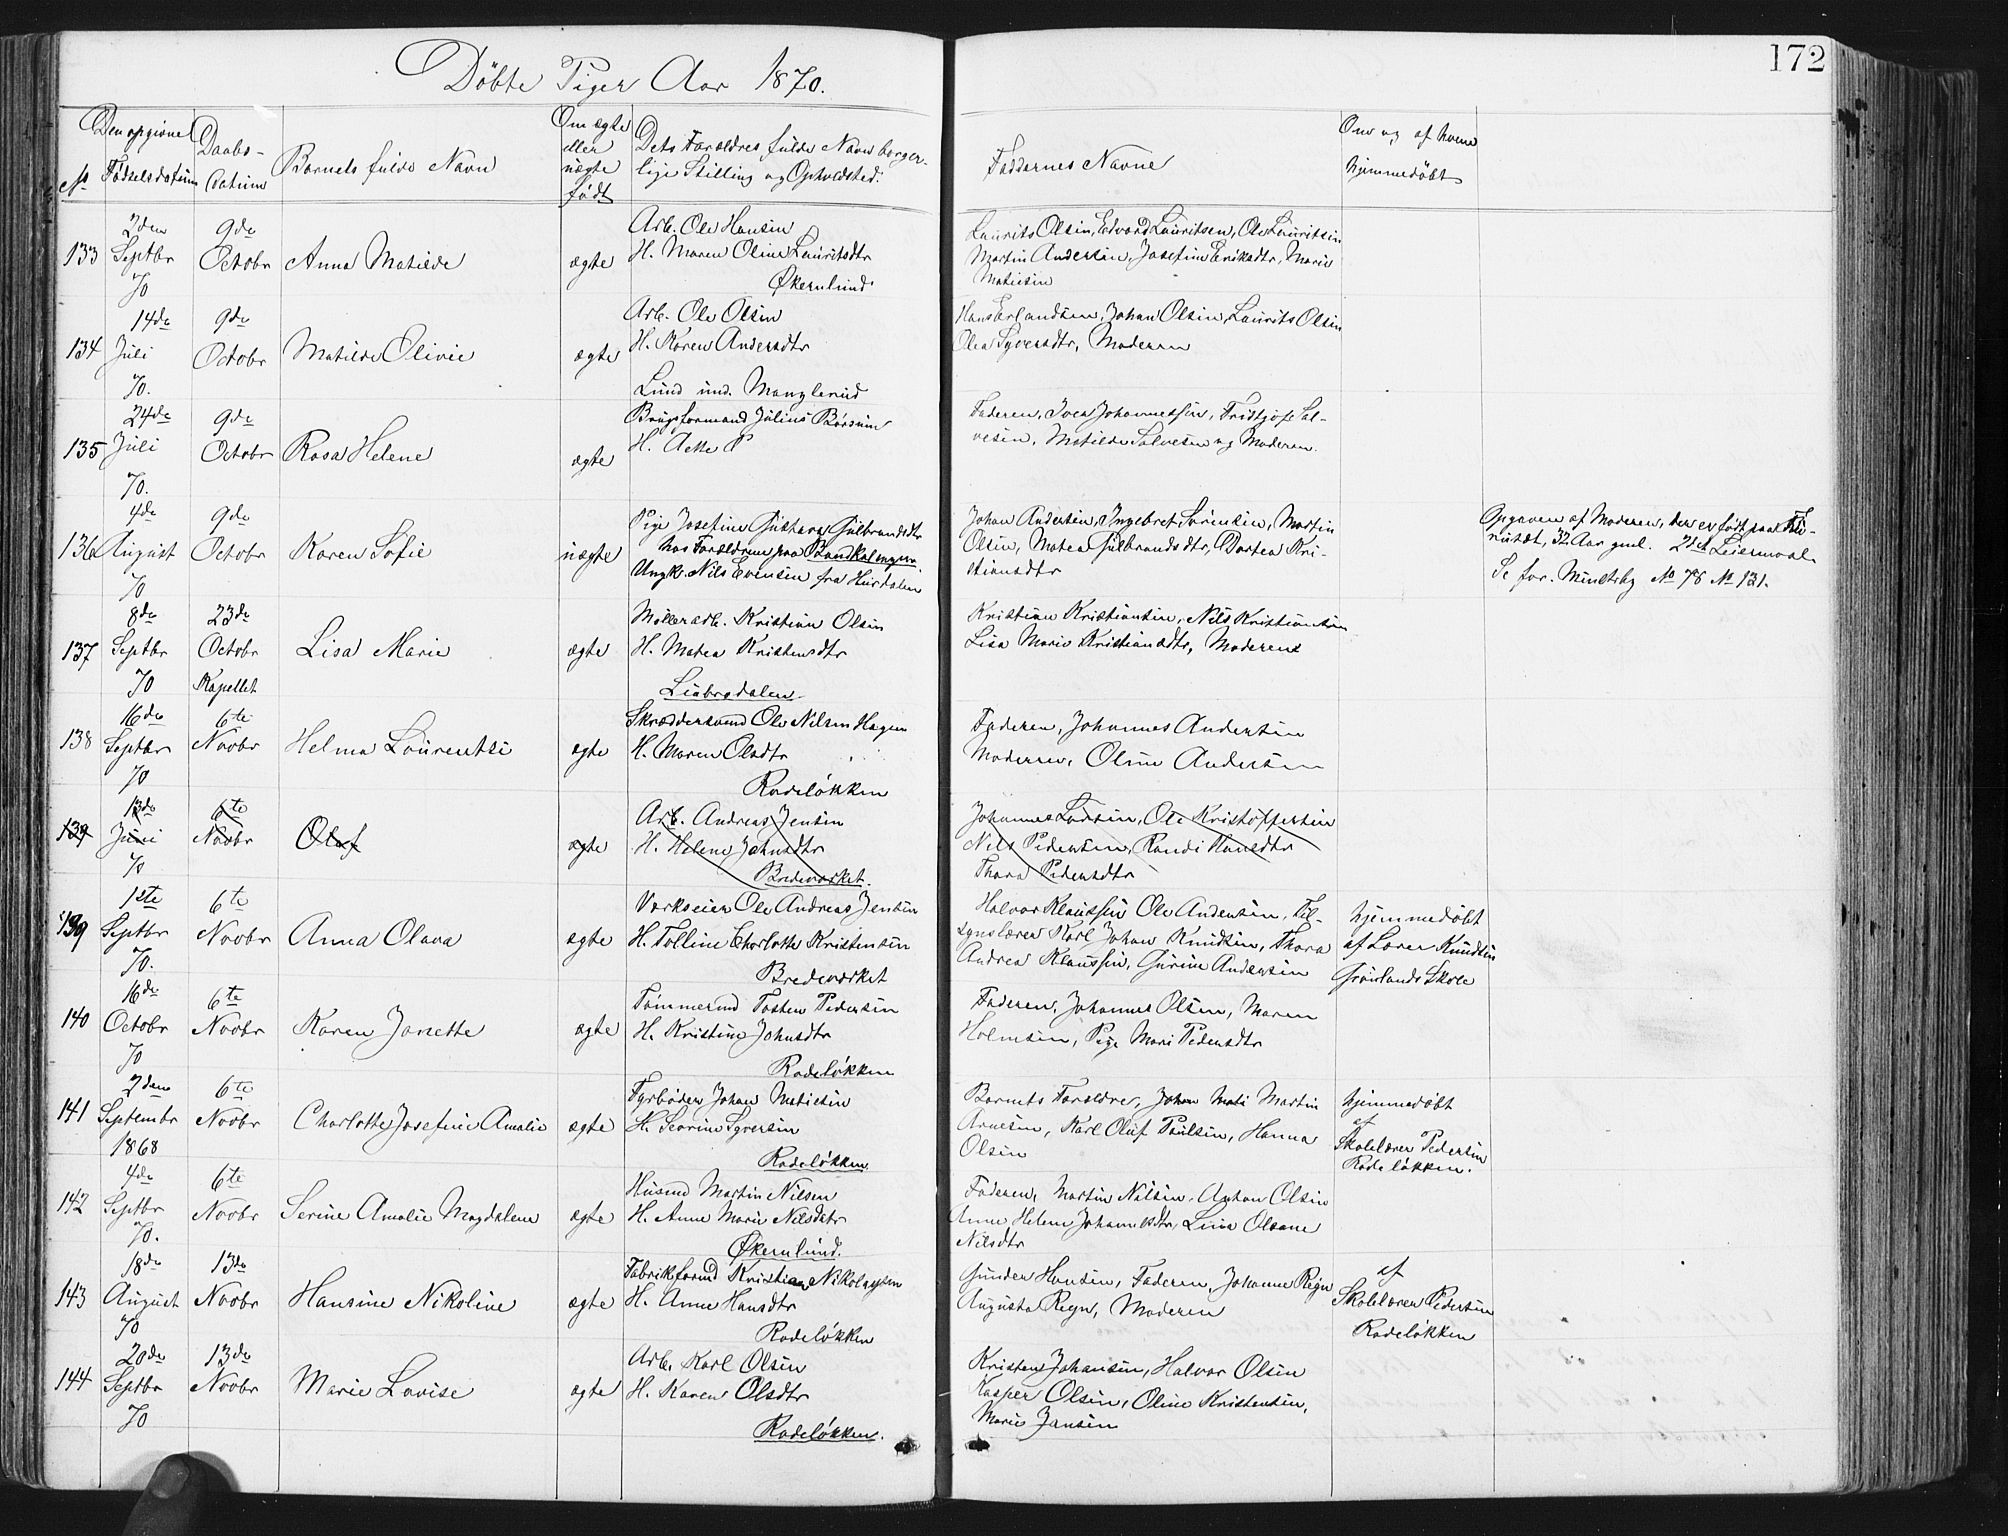 172
Døbte Piger Aar 1870.
No
Den opgivne Fødselsdatum
Daabs-Datum
Barnets fulde Navn
Om ægte eller uægte født
Dets Forældres fulde Navn borger-
lige Stilling og Opholdsted.
Faddernes Navne
Om og af hvem
hjemmedøbt
133
2den Septbr 70
9de Octobr
Anna Matilde
ægte
Arb. Ole Hansen
H. Maren Oline Lauritsdtr
Økernlund
Laurits Olsen, Edvard Lauritsen, Ole Lauritsen
Martin Andersen, Josefine Eriksdtr, Marie
Matiesen
134
14de Juli 70.
9de Octobr
Matilde Olivie
ægte
Arb. Ole Olsen
H. Karen Andersdtr
Lund und. Manglerud
Hans Erlandsen, Johan Olsen, Laurits Olsen
Olea Syversdtr, Moderen
135
24de Juli 70.
9de Octobr
Rosa Helene
ægte
Brugsformand Julius Børsum
H. Aette P
Faderen, Iver Johannessen, Fritjofe Sal-
vesen, Matilde Salvesen og Moderen.
136
4de August 70
9de Octobr
Karen Sofie
uægte
Pige Josefine Gustava Gulbrandsdtr
hos Forældrene paa
Ungk. Nils Evensen fra Hurdalen
Johan Andersen, Ingebret Sørensen, Martin
Olsen, Matea Gulbrandsdtr, Dortea Kri-
stiansdtr
Opgaven af Moderen, der er født paa
32 Aar gml. 2det Leiermaal.
Se for. Ministbg No 78 No 131.
137
8de Septbr 70
23de Octobr Kapellet
Lisa Marie
ægte
Møllerarb. Kristian Olsen
H. Matea Kristensdtr
Liabrodalen
Kristian Kristiansen, Nils Kristiansen
Lisa Marie Kristiansdtr, Moderen
138
16de Septbr 70
6te Novbr
Helma Laurentse
ægte
Skræddersvend Ole Nilsen Hagen
H. Maren Olsdtr
Rodeløkken
Faderen, Johannes Andersen
Moderen, Oline Andersen
139
13de Juni 70
6te Novbr
Olaf
ægte
Arb. Andreas Jensen
H. Helene Johnsdtr
Bredevasket.
Johannes Larsen, Ole Kristoffersen
Nils Pedersen, Randi Hansdtr
Thora Pedersdtr
139
1ste Septbr 70.
6te Novbr
Anna Olava
ægte
Værkseier Ole Andreas Jensen
H. Tolline Charlotte Kristensen
Bredevasket
Halvor Klaussen Ole Andersen, Til-
synslærer Karl Johan Knudsen, Thora
Andrea Klaussen, Gurine Andersen
hjemmedøbt
af Lærer Knudsen
Grønlands Skole
140
16de Octobr 70
6te Novbr
Karen Janette
ægte
Tømmermd Tosten Pedersen
H. Kristine Johnsdtr
Rodeløkken
Faderen, Johannes Olsen, Maren
Holmsen, Pige Mari Pedersdtr
141
2den Septembr 1868
6te Novbr
Charlotte Josefine Amalie
ægte
Fyrbøder Johan Matiesen
H. Severine Syversen
Rodeløkken
Barnets Forældre, Johan Mati Martin
Arnesen, Karl Oluf Poulsen, Hanna
Olsen
hjemmedøbt
af
Skolelærer Pedersen
Rodeløkken.
142
4de Septbr 70.
6te Novbr
Serine Amalie Magdalene
ægte
Husmd Martin Nilsen
H. Anne Marie Nilsdatr
Økernlund.
Faderen, Martin Nilsen, Anton Olsen
Anne Helene Johannesdtr, Lina Olsane
Nilsdtr
143
18de August 70
13de Novbr
Hansine Nikoline
ægte
Fabrikformd Kristian Nikolaysen
H. Anne Hansdtr
Rodeløkken
Gunder Hansen, Faderen, Johanne Regn
Augusta Regn, Moderen
af
Skolelærer Pedersen
Rodeløkken
144
20de Septbr 70
13de Novbr
Marie Lovise
ægte
Arb. Karl Olsen
H. Karen Olsdtr
Rodeløkken.
Kristen Johansen, Halvor Olsen
Kasper Olsen, Oline Kristensen,
Marie Jansen